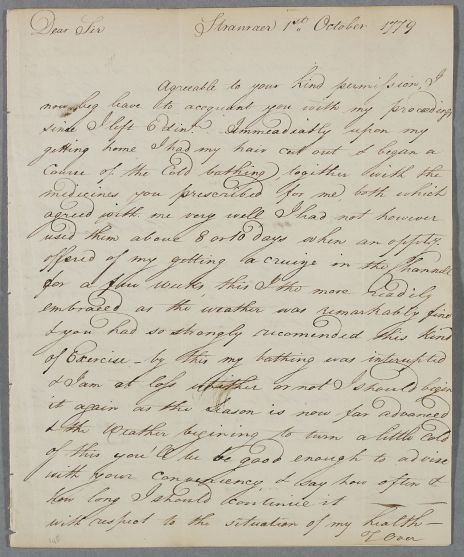 Dear Sir Stranraer 1st October 1779
Agreable to your kind permission, I
now beg leave to accquant you with my proceedings
since I left Edinr. Immeadiatly upon my
getting home I had my hair cut out & began a
Course of the Cold bathing together with the
medicines you prescribed for me, both which
agreed with me very well, I had not however
used them above 8 or 10 days when an oppty.
offered of my getting a cruize in the Channell
for a few weeks, this I the more readily
embraced as the weather was remarkably fine
& you had so strongly recomended this kind
of Exercise – by this my bathing was interupted
& I am at loss whither or not I should begin
it again as the season is now far advanced
& the Weather begining to turn a little Cold
of this you'll be good enough to advise
with your Conveniency & say how often &
how long I should continue it
with respect to the situation of my health –
Over